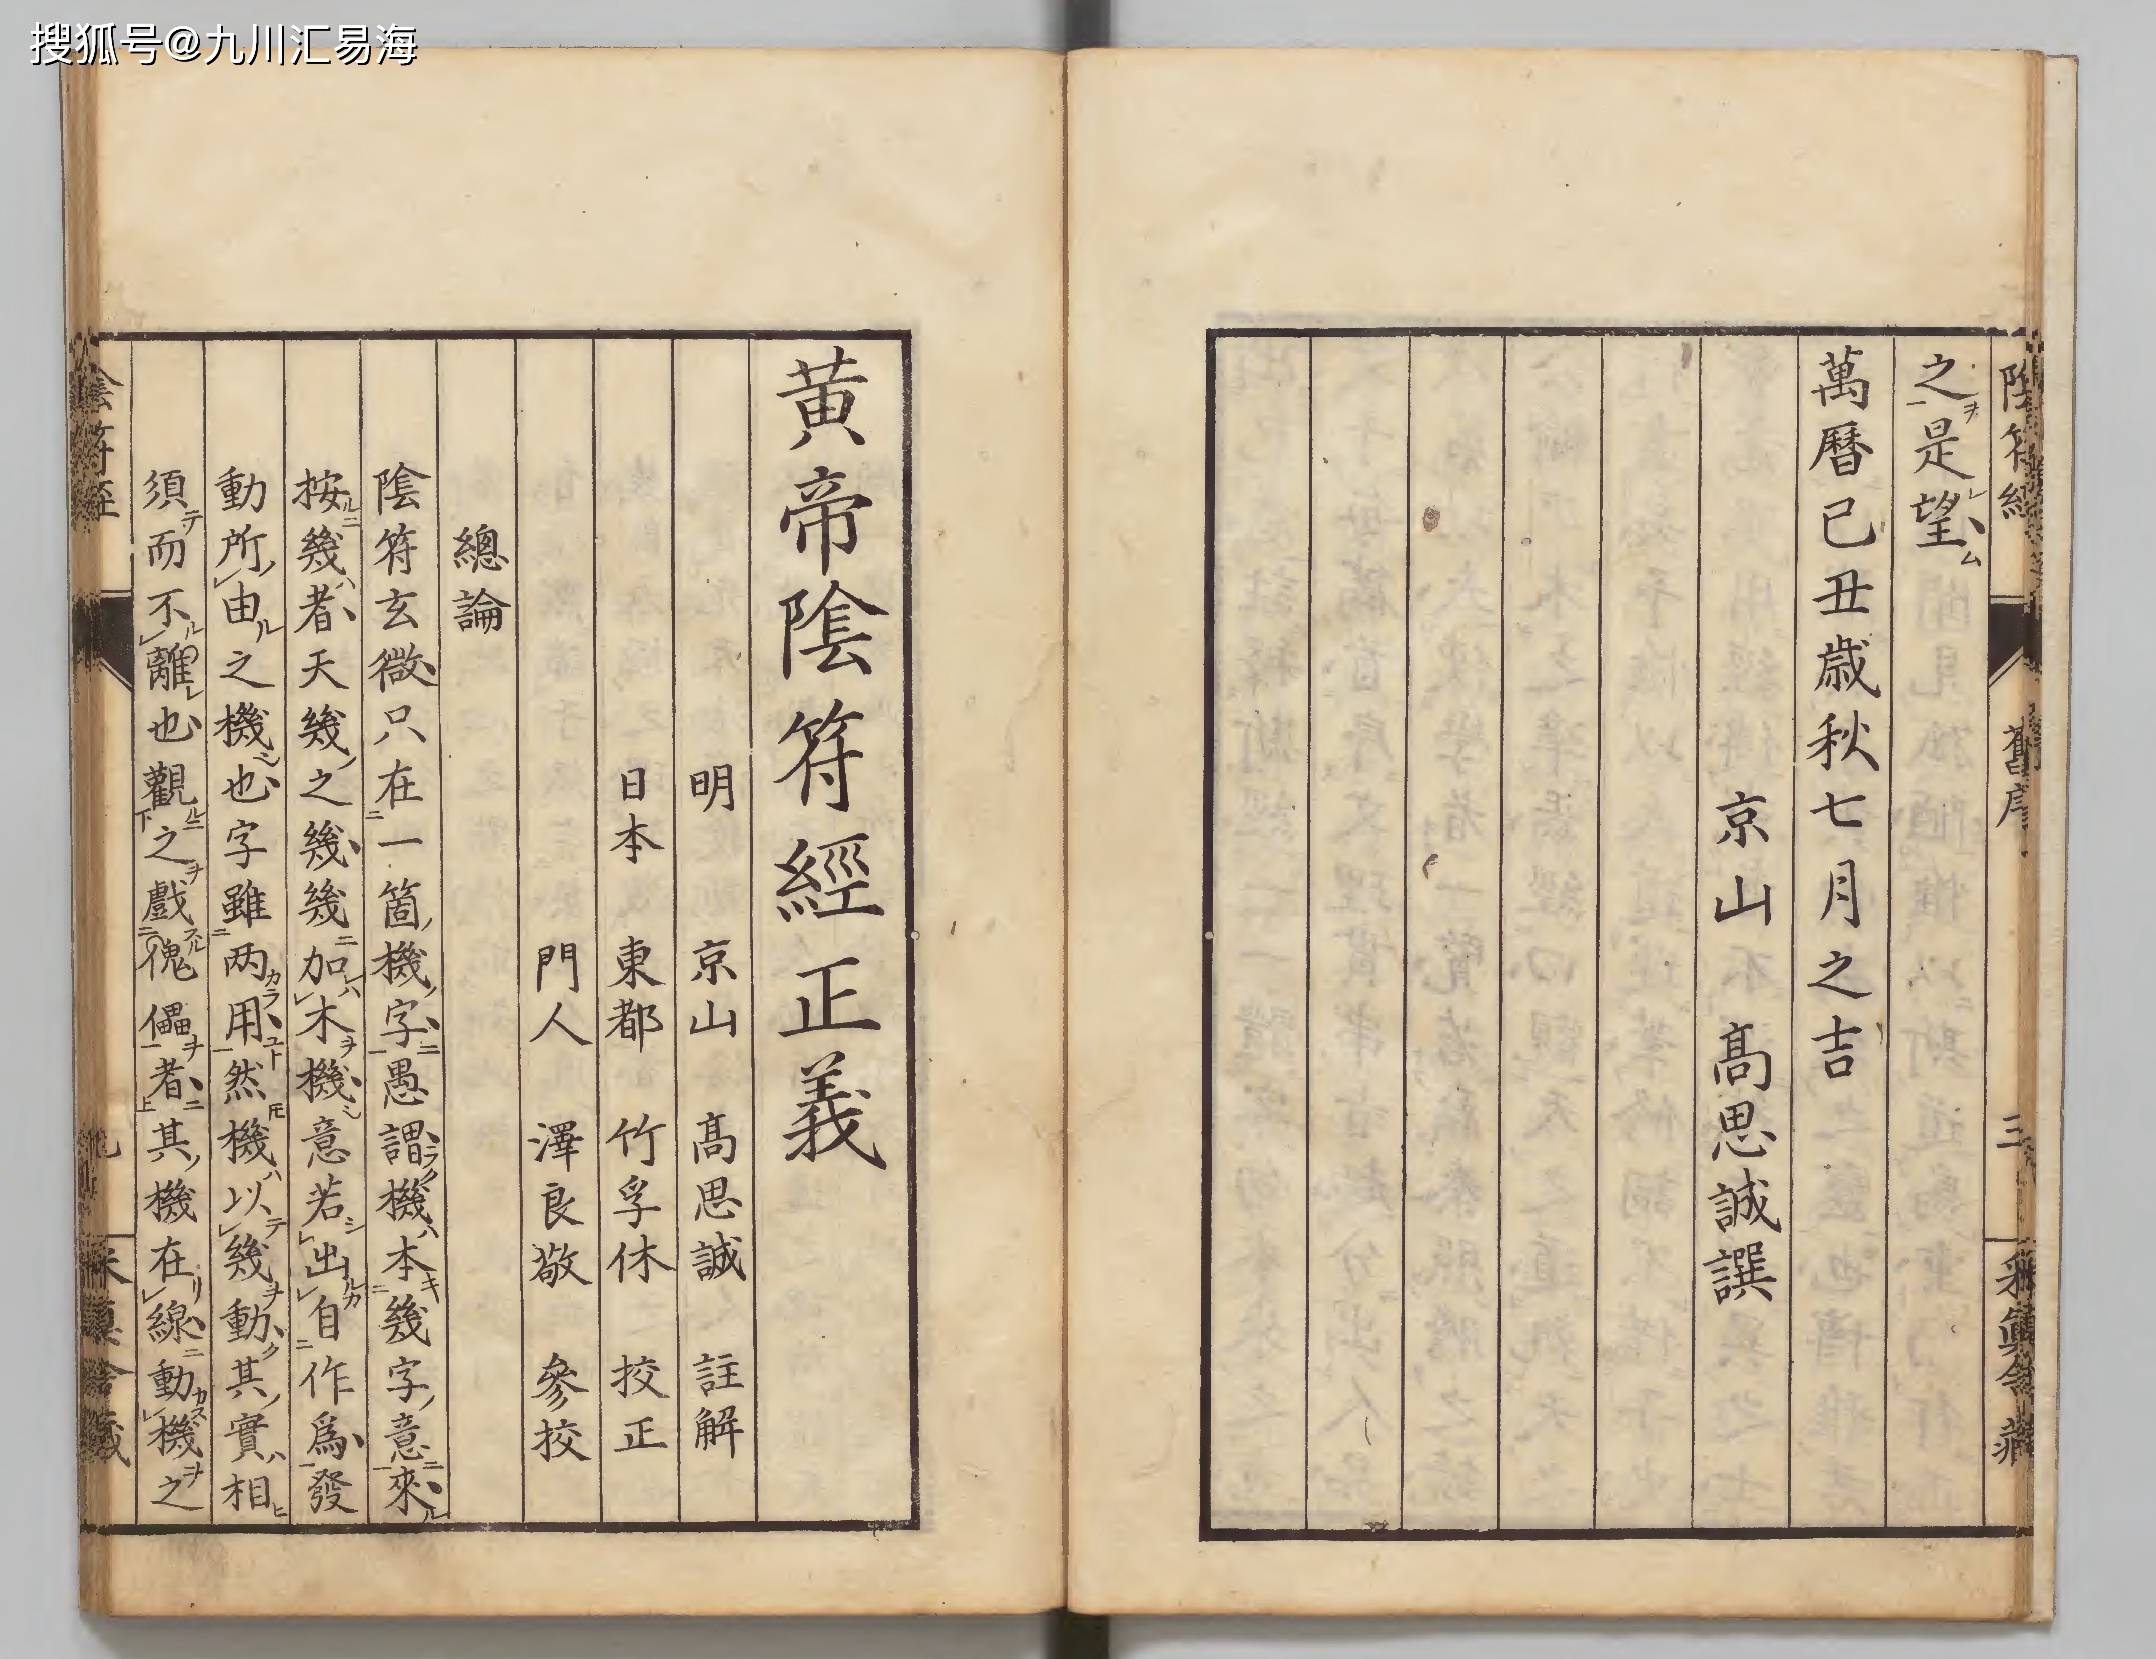 搜狐号@九川汇易海
陰符經 舊序 三 采眞舍藏
之是望
萬曆己丑歲秋七月之吉
京山 高思誠譔
黄帝陰符經正義
明 京山 高思誠 註解
日本 東都 竹孚休 挍正
門人 澤良敬 參挍
總論
陰符玄微只在一箇機字愚謂機本幾字意來
按幾者天幾之幾幾加木機意若出自作爲發
動所由之機也字雖两用然機以幾動其實相
須而不離也觀之戲傀儡者其機在線動機之
陰符經 采眞舍藏